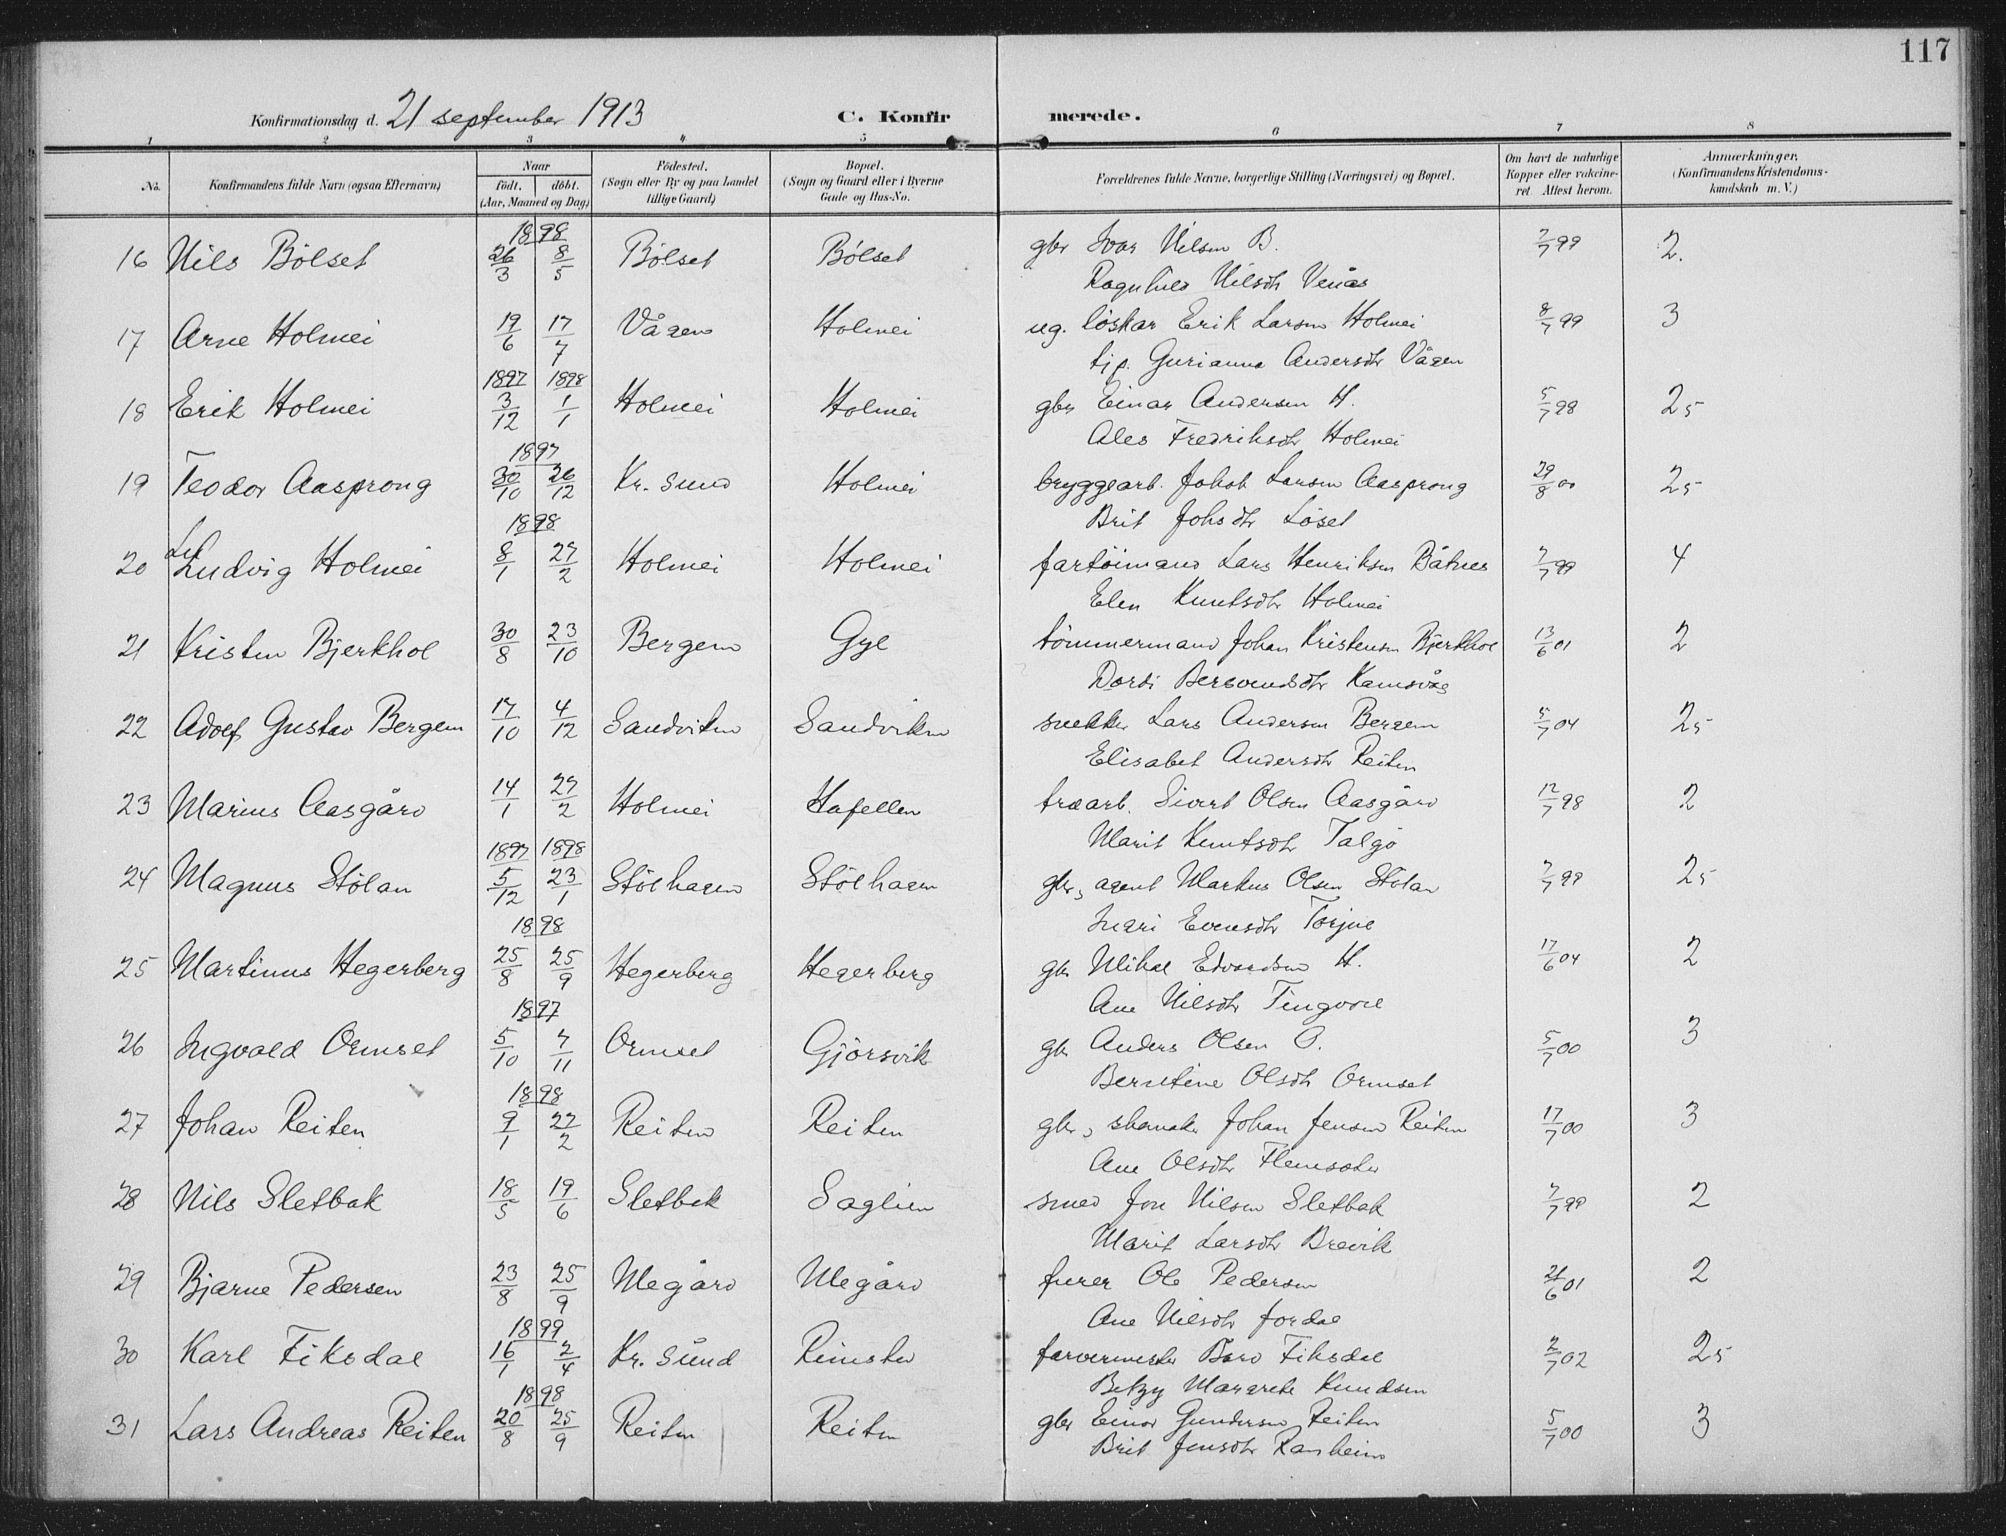 117
Konfirmationsdag d. 21 september 1913 C. Konfirmerede.
1 2 3 4 5 6 7 8
No. Konfirmandens fulde Navn (ogsaa Efternavn) Naar födt. döbt. (Aar, Maaned og Dag) Födested. (Sogn eller By og paa Landet tillige Gaard) Bopæl. (Sogn og Gaard eller i Byerne Gade og Hus-No. Forældrenes fulde Navne, borgerlige Stilling (Næringsvei) og Bopæl. Om havt de naturlige Kopper eller vakcineret. Attest herom. Anmærkninger. (Konfirmandens Kristendomskundskab m. V.)
1898
16 Nils Bølset 26/3 8/5 Bölset Bölset gbr Ivar Nilsen B. 7/7 99 2.
Ragnhild Nilsdtr Venås
17 Arne Holmei 19/6 17/7 Vågen Holmei ug. löskar Erik Larsen Holmei 8/7 99 3
tjp. Gurianna Andersdtr Vågen
1897 1898
18 Erik Holmei 3/12 1/1 Holmei Holmei gbr Einar Andersen H. 5/7 98 25
Ales Fredriksdtr Holmei
1897
19 Teodor Aasprong 30/10 26/12 Kr. sund Holmei bryggearb. Jakob Larsen Aasprong 29/8 00 25
Brit Johsdtr Löset
1898
20 Ludvig Holmei 8/1 27/2 Holmei Holmei fartöimand Lars Henriksen Båtnes 7/7 99 4
Elen Knutsdtr Holmei
21 Kristen Bjerkhol 30/8 23/10 Bergem Gyl tömmermand Johan Kristensen Bjerkhol 13/6 01 2
Dordi Bersvendsdtr Kamsvåg
22 Adolf Gustav Bergem 17/10 4/12 Sandviken Sandviken snekker Lars Andersen Bergem 5/7 04 25
Elisabet Andersdtr Reiten
23 Marius Aasgård 14/1 27/2 Holmei Hafellen træarb. Sivert Olsen Aasgård 12/7 98 2
Marit Knutsdtr Talgö
1897 1898
24 Magnus Stölan 5/12 23/1 Stölhagen Stölhagen gbr, agent Markus Olsen Stölan 7/7 99 25
Mari Evensdtr Torjul
1898
25 Martinus Hegerberg 25/8 25/9 Hegerberg Hegerberg gbr Mikal Edvardsen H. 17/6 04 2
Ane Nilsdtr Tingvoll
1897
26 Ingvald Ormset 5/10 7/11 Ormset Gjörsvik gbr Anders Olsen O. 5/7 00 3
Berntine Olsdtr Ormset
1898
27 Johan Reiten 9/1 27/2 Reiten Reiten gbr, skomaker Johan Jensen Reiten 17/7 00 3
Ane Olsdtr Flemsæter
28 Nils Sletbak 18/5 19/6 Sletbak Saglien smed Jon Nilsen Sletbak 7/7 99 2
Marit Larsdtr Brevik
29 Bjarne Pedersen 23/8 25/9 Megård Megård furer Ole Pedersen 21/6 01 2
Ane Nilsdtr Jordal
1899
30 Karl Fiksdal 16/1 2/4 Kr. sund Rimstad farvermester Bård Fiksdal 2/7 02 25
Betzy Margrete Knudsen
1898
31 Lars Andreas Reiten 20/8 25/9 Reiten Reiten gbr Einar Gundersen Reiten 5/7 00 3
Brit Jensdtr Ranheim